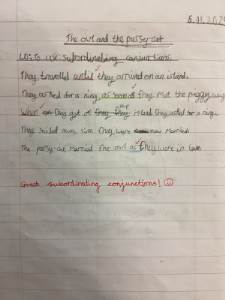 The owl and the pussy cat
LO: To use subordinating conjunctions
They travelled until they arrived on an island.
They asked for a ring, as soon as they met the piggy
When they got of the ship they asked for a ring.
They sailed away, since they were now married.
The pussy-cat married the owl as they were in love
Great subordinating conjunctions! ☺